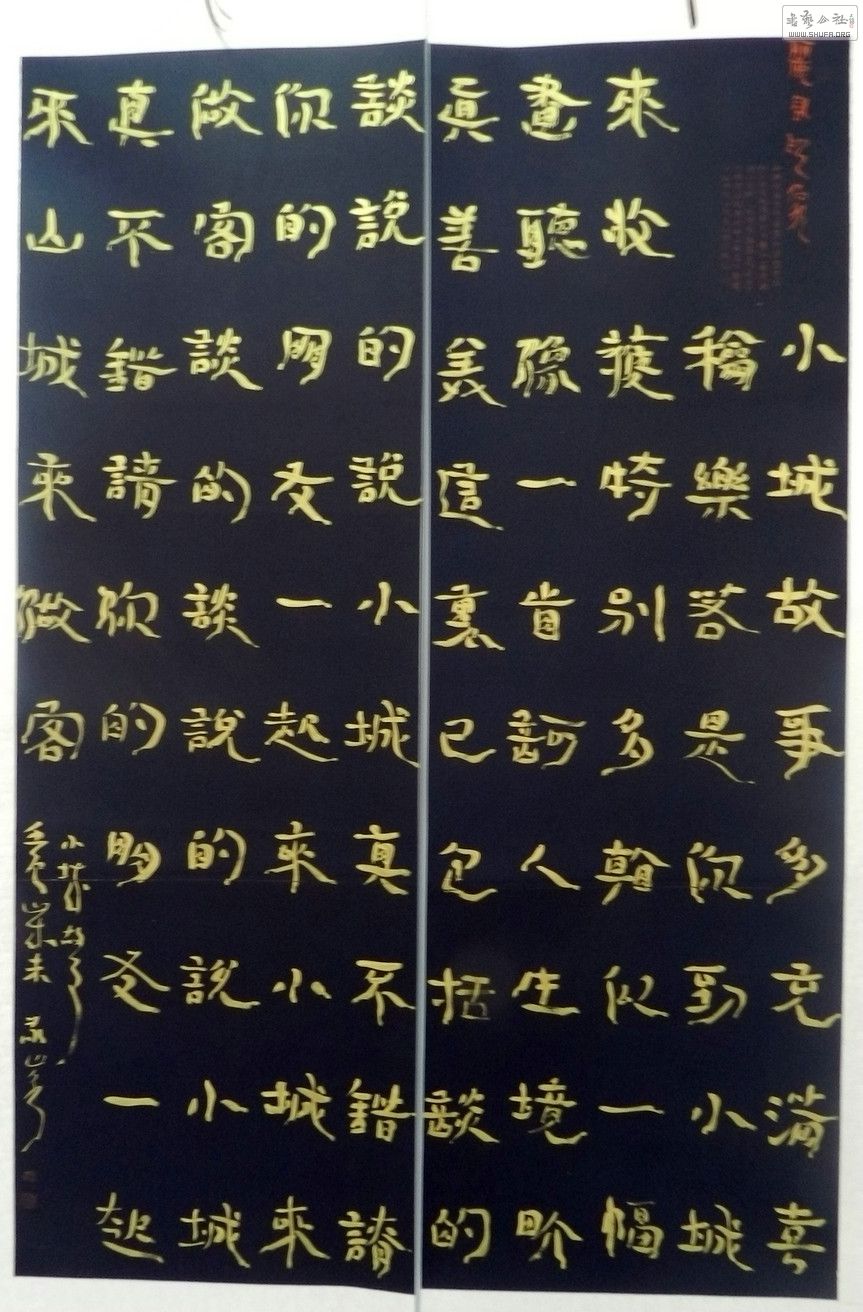 書藝公社
WWW.SHUFA.ORG
小城故事多充滿喜
樂若是你到小城
來收穫特别多看似一幅
畫聽像一首歌人生境界
真善美這裏已包括談的
談說的說小城真不錯請
你的朋友一起來小城來
做客談的談說的說小城
真不錯請你的朋友一起
來山城來做客
小城故事
歲末